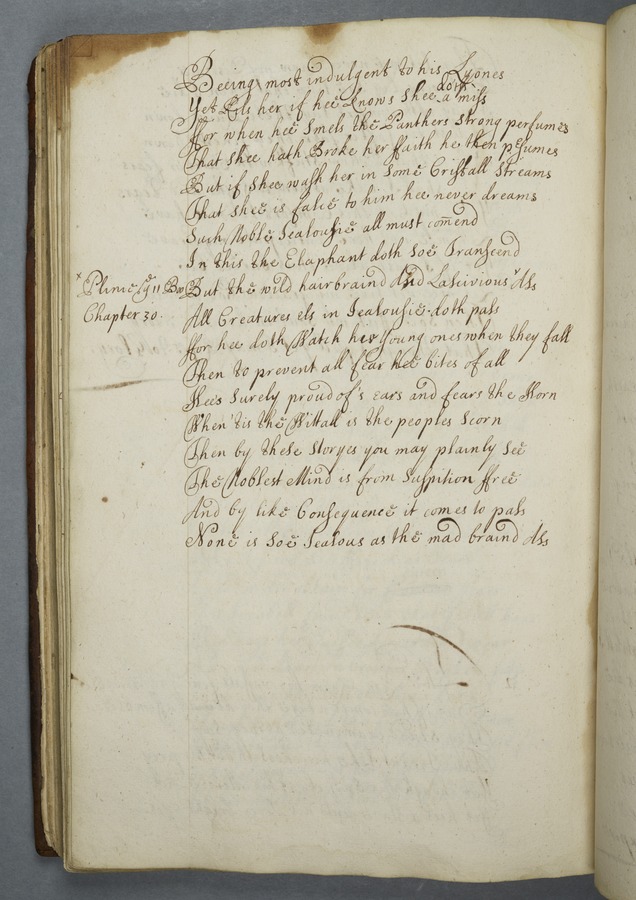 Beeing most indulgent to his Lyones
Yet Kils her if hee knows shee doth a miss
ffor when hee smels the Panthers strong perfumes
That shee hath Broke her ffaith he then presumes
But if shee wash her in some Cristall streams
That shee is falce to him hee never dreams
Such Noble Jealousie all must comend
In this the ELaphant doth soe Transcend
x Plinie ye 11 Boo
Chapter 30.
But the wild hairbraind and Lascivious x Ass
All Creatures els in Jealousie doth pass
ffor hee doth Watch his young ones when they fall
Then to prevent all fear hee bites of all
Hees surely proud of's ears and fears the Horn
When 'tis the Wittall is the peoples scorn
Then by these storyes you may plainly see
The Noblest Mind is from suspition ffree
And by like Consequence it comes to pass
None is soe Jealous as the mad braind Ass